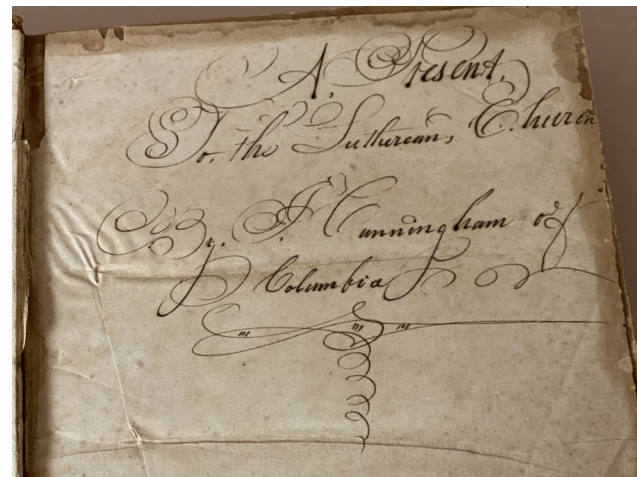 A. Present,
To. the Luthurean, Church
By. F Cunningham of
Columbia